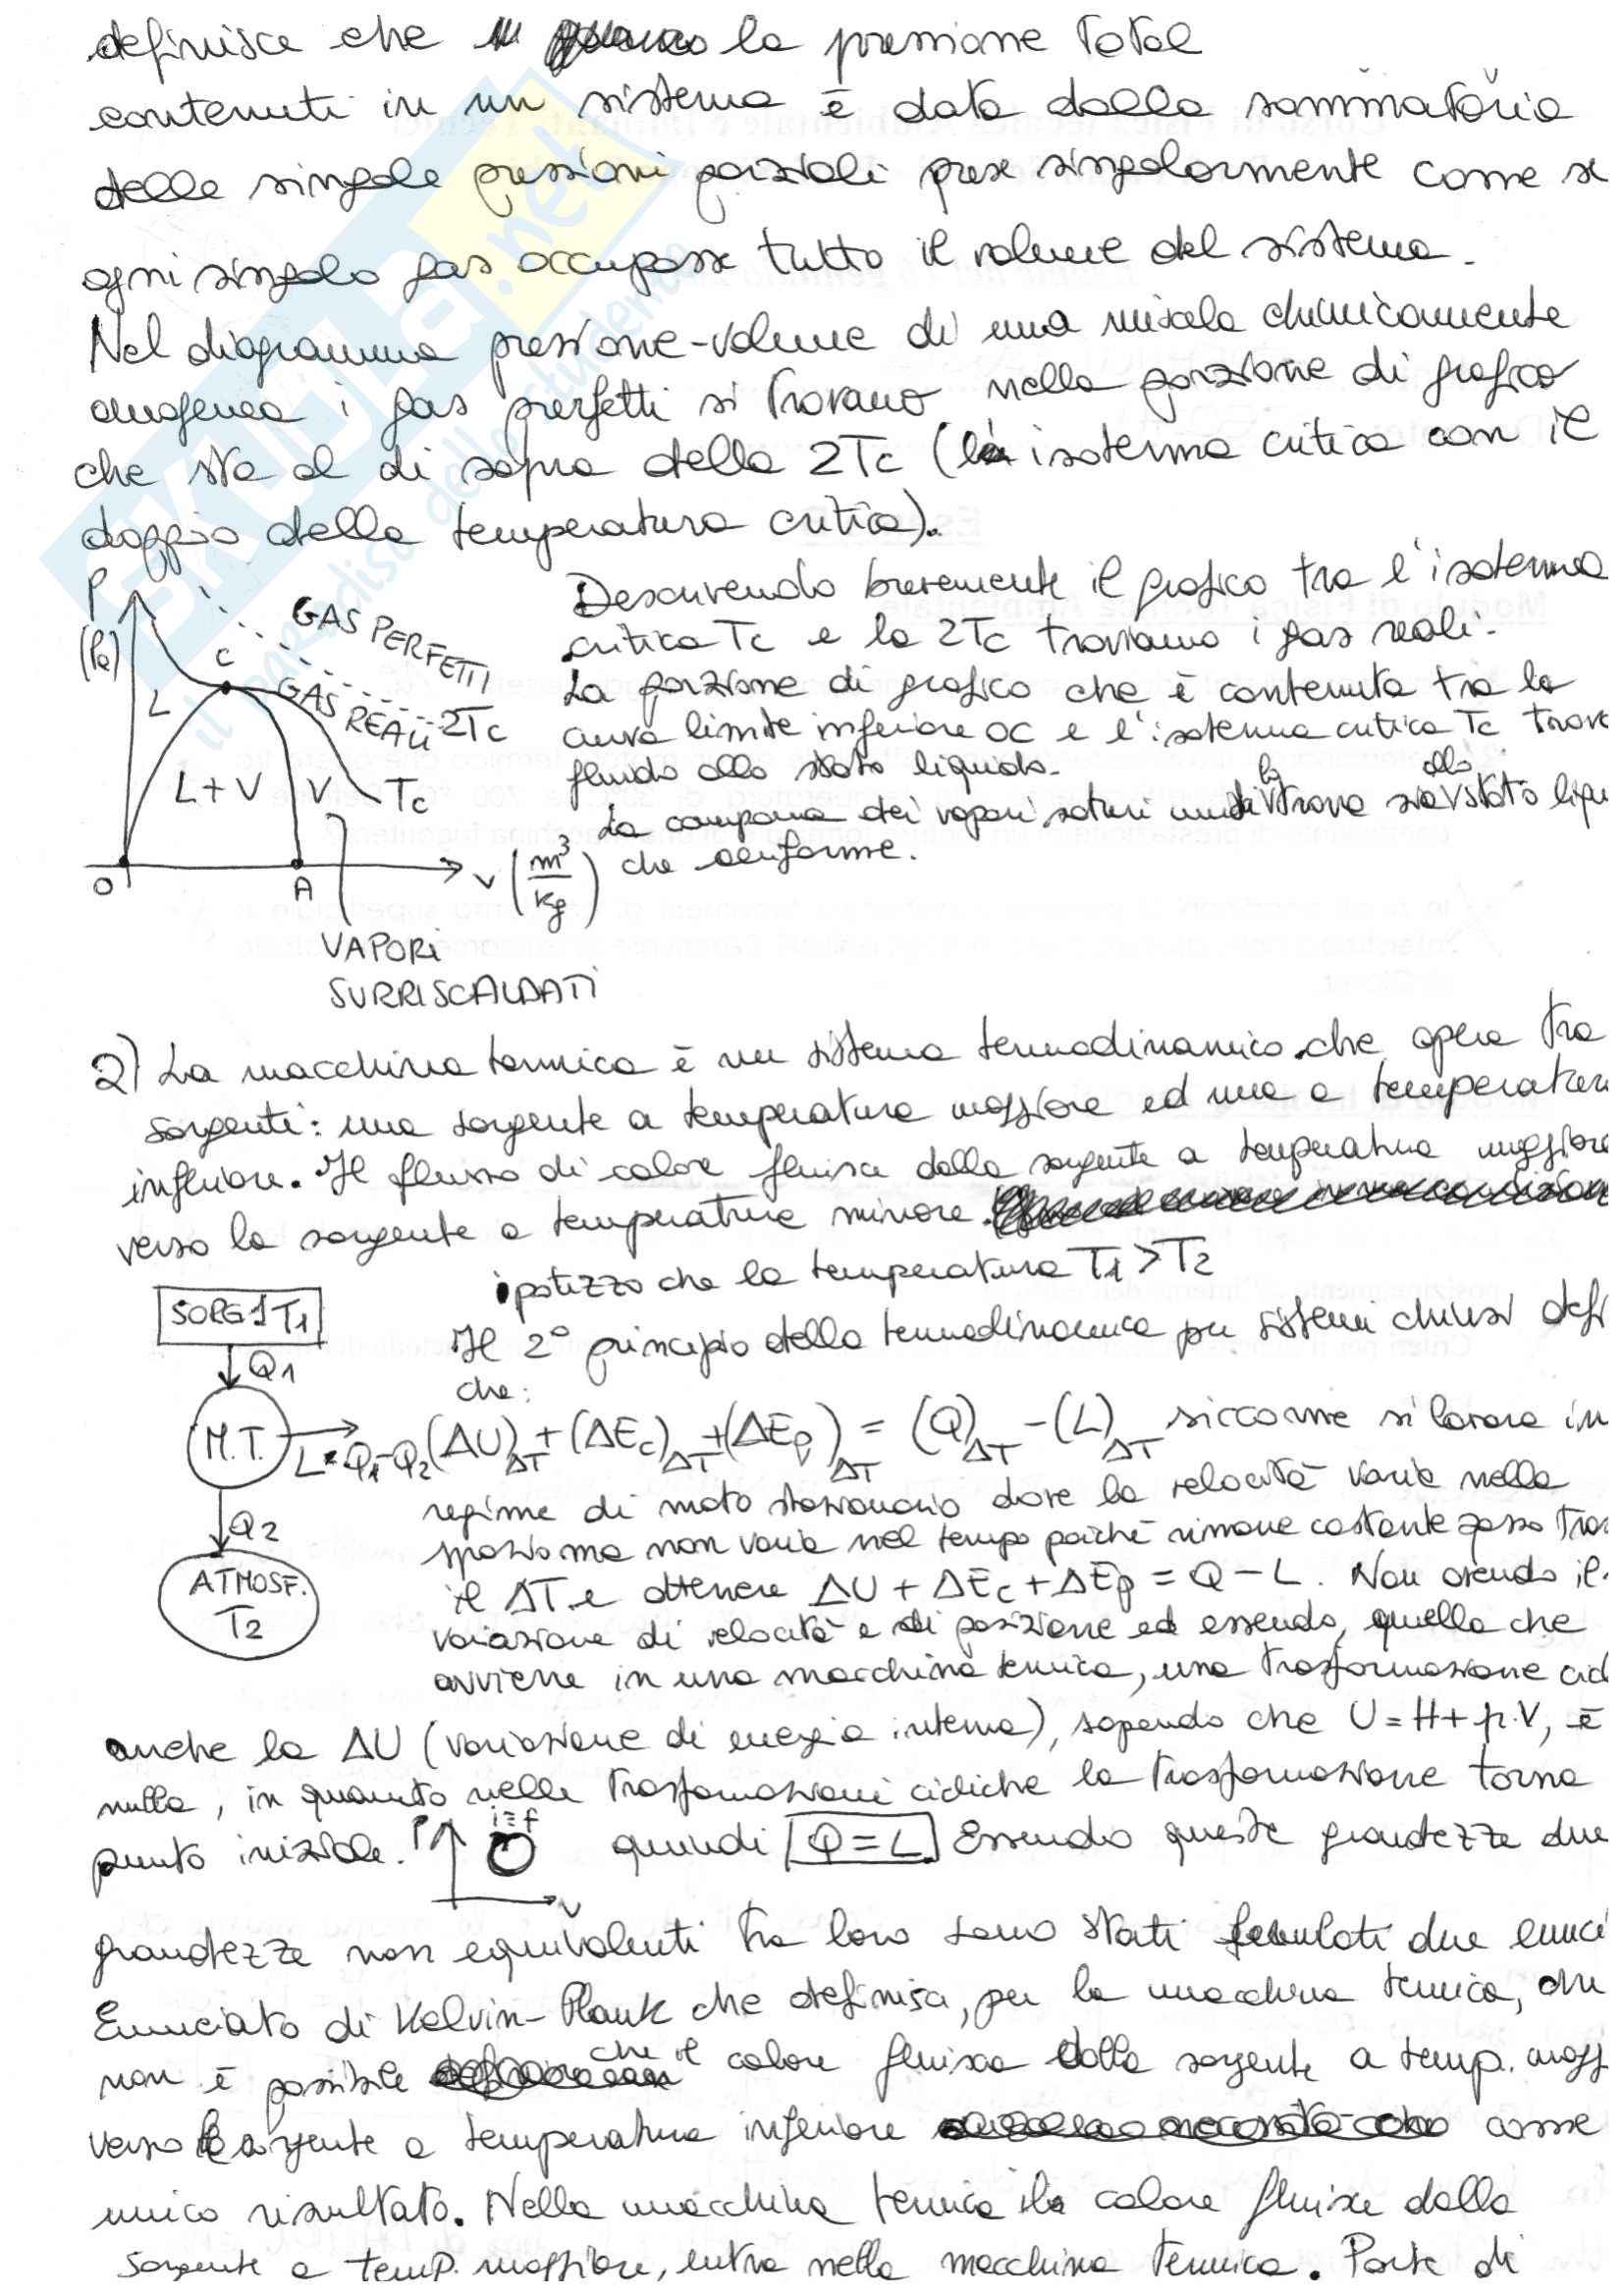 definisce che la pressione total
contenuti in un sistema è data dalla sommatoria
delle singole pressioni parziali prese singolarmente come se
ogni singolo gas occupasse tutto il volume del sistema.
Nel diagramma pressione-volume di una miscela chimicamente
omogenea i gas perfetti si trovano nella porzione di grafico
che sta al di sopra della 2Tc (la isoterma critica con il
doppio della temperatura critica).
Descrivendo brevemente il grafico tra l'isoterma
critica Tc e la 2Tc troviamo i gas reali.
La porzione di grafico che è contenuta tra la
curva limite inferiore OC e l'isoterma critica Tc trov
fluido allo stato liquido.
La campana dei vapori saturi umidi la trova sia allo stato liqu
che aeriforme.
P
(Pa)
C
GAS PERFETTI
GAS REALI
2Tc
L
L+V
V
Tc
O
A
v (m³/kg)
VAPORI
SURRISCALDATI
2) La macchina termica è un sistema termodinamico che opera tra
sorgenti: una sorgente a temperatura maggiore ed una a temperatura
inferiore. Il flusso di calore fluisce dalla sorgente a temperatura maggiore
verso la sorgente a temperatura minore.
ipotizzo che la temperatura T1>T2
Il 2° principio della termodinamica per sistemi chiusi defi
che:
SORG 1 T1
Q1
M.T.
L=Q1-Q2
Q2
ATMOSF.
T2
(ΔU)ΔT+(ΔEc)ΔT+(ΔEp)ΔT = (Q)ΔT-(L)ΔT siccome si lavora in
regime di moto stazionario dove la velocità varia nello
spazio ma non varia nel tempo poiché rimane costante posso tras
il ΔT e ottenere ΔU+ΔEc+ΔEp=Q-L. Non avendo il
variazione di velocità e di posizione ed essendo, quella che
avviene in una macchina termica, una trasformazione cicl
anche la ΔU (variazione di energia interna), sapendo che U=H+p.V, è
nulla, in quanto nelle trasformazioni cicliche la trasformazione torna
punto iniziale.
P
i≡f
v
quindi Q=L Essendo queste grandezze due
grandezze non equivalenti tra loro sono stati due enunci
Enunciato di Kelvin-Plank che definisce, per la macchina termica, che
non è possibile che il calore fluisca dalla sorgente a temp. magg
verso la sorgente a temperatura inferiore come
unico risultato. Nella macchina termica il calore fluisce dalla
sorgente a temp. maggiore, entra nella macchina termica. Parte di
SKUOLA.net
il paradiso dello studente